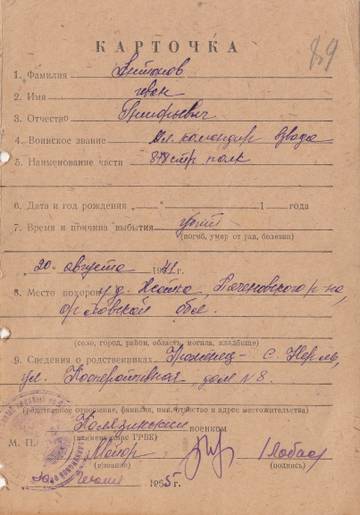 89
КАРТОЧКА
1. Фамилия Антонов
2. Имя Иван
3. Отчество
4. Воинское звание мл. командир взвода
5. Наименование части 878 стр полк
6. Дата и год рождения „ “ 1 года
7. Время и причина выбытия убит
(погиб, умер от ран, болезни)
20 августа 1941 г.
8. Место похорон у д.
орловской обл.
(село, город, район, область, могила, кладбище)
9. Сведения о родственниках. с. Нерль,
ул. Кооперативная дом № 8.
(родственное отношение, фамилия, имя, отчество и адрес местожительства)
Калязинский военком
М. П. (наименование ГРВК)
Майор
(звание) (подпись)
195 г.